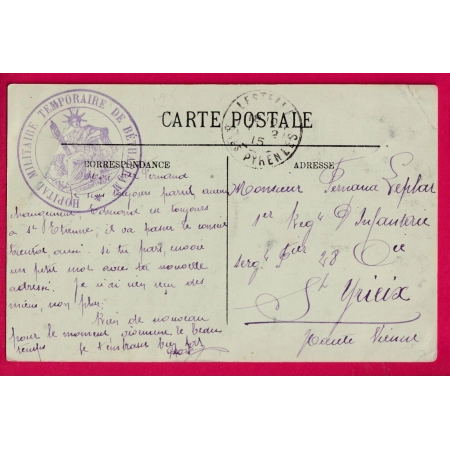 HÔPITAL MILITAIRE TEMPORAIRE DE BÉTHARRAM
LESTELLE
2
15
PYRÉNÉES
CARTE POSTALE
CORRESPONDANCE
ADRESSE
cher Fernand
toujours pareil aucun
changement, Edmond est toujours
à St Etienne; il va passer le conseil
bientôt aussi. si tu part, envoie
un petit mot avec ta nouvelle
adresse. Je n'ai rien reçu des
miens, non plus.
Rien de nouveau
pour le moment vivement le beau
temps
Je t'embrasse bien fort
Monsieur Fernand
1er Regt d'Infanterie
Sergt 28 Cie
St Yrieix
Haute Vienne